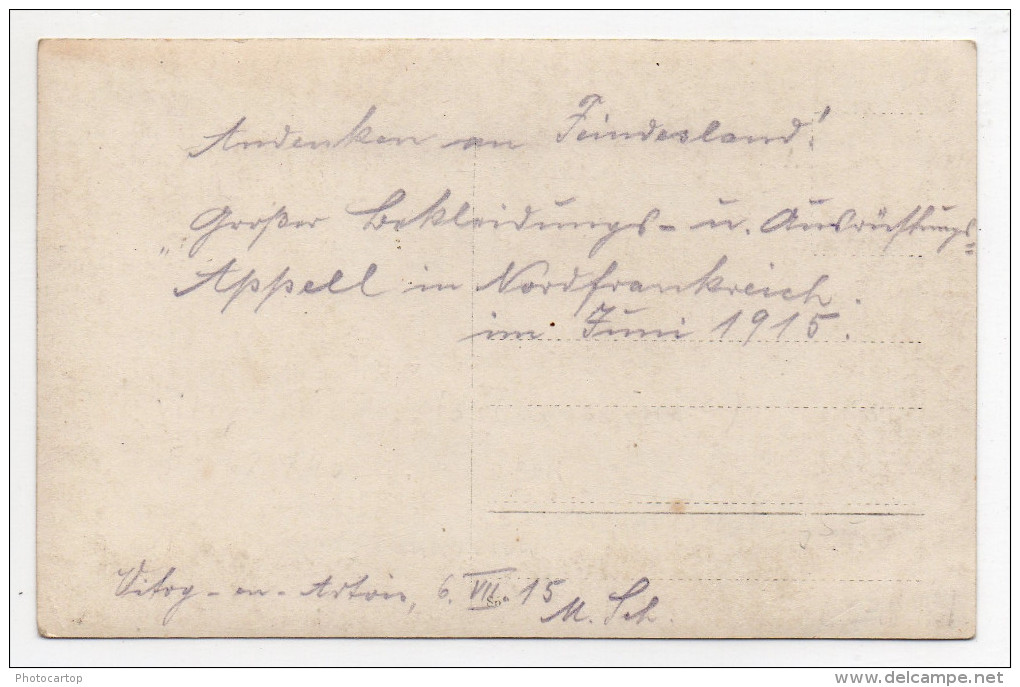 Andenken an Feindesland!
„Großer Bekleidungs- u. Ausrüstungs=
Appell in Nordfrankreich.
im Juni 1915.
Vitry-en-Artois, 6. VII. 15
M. Sch.
Photocartop
www.delcampe.net